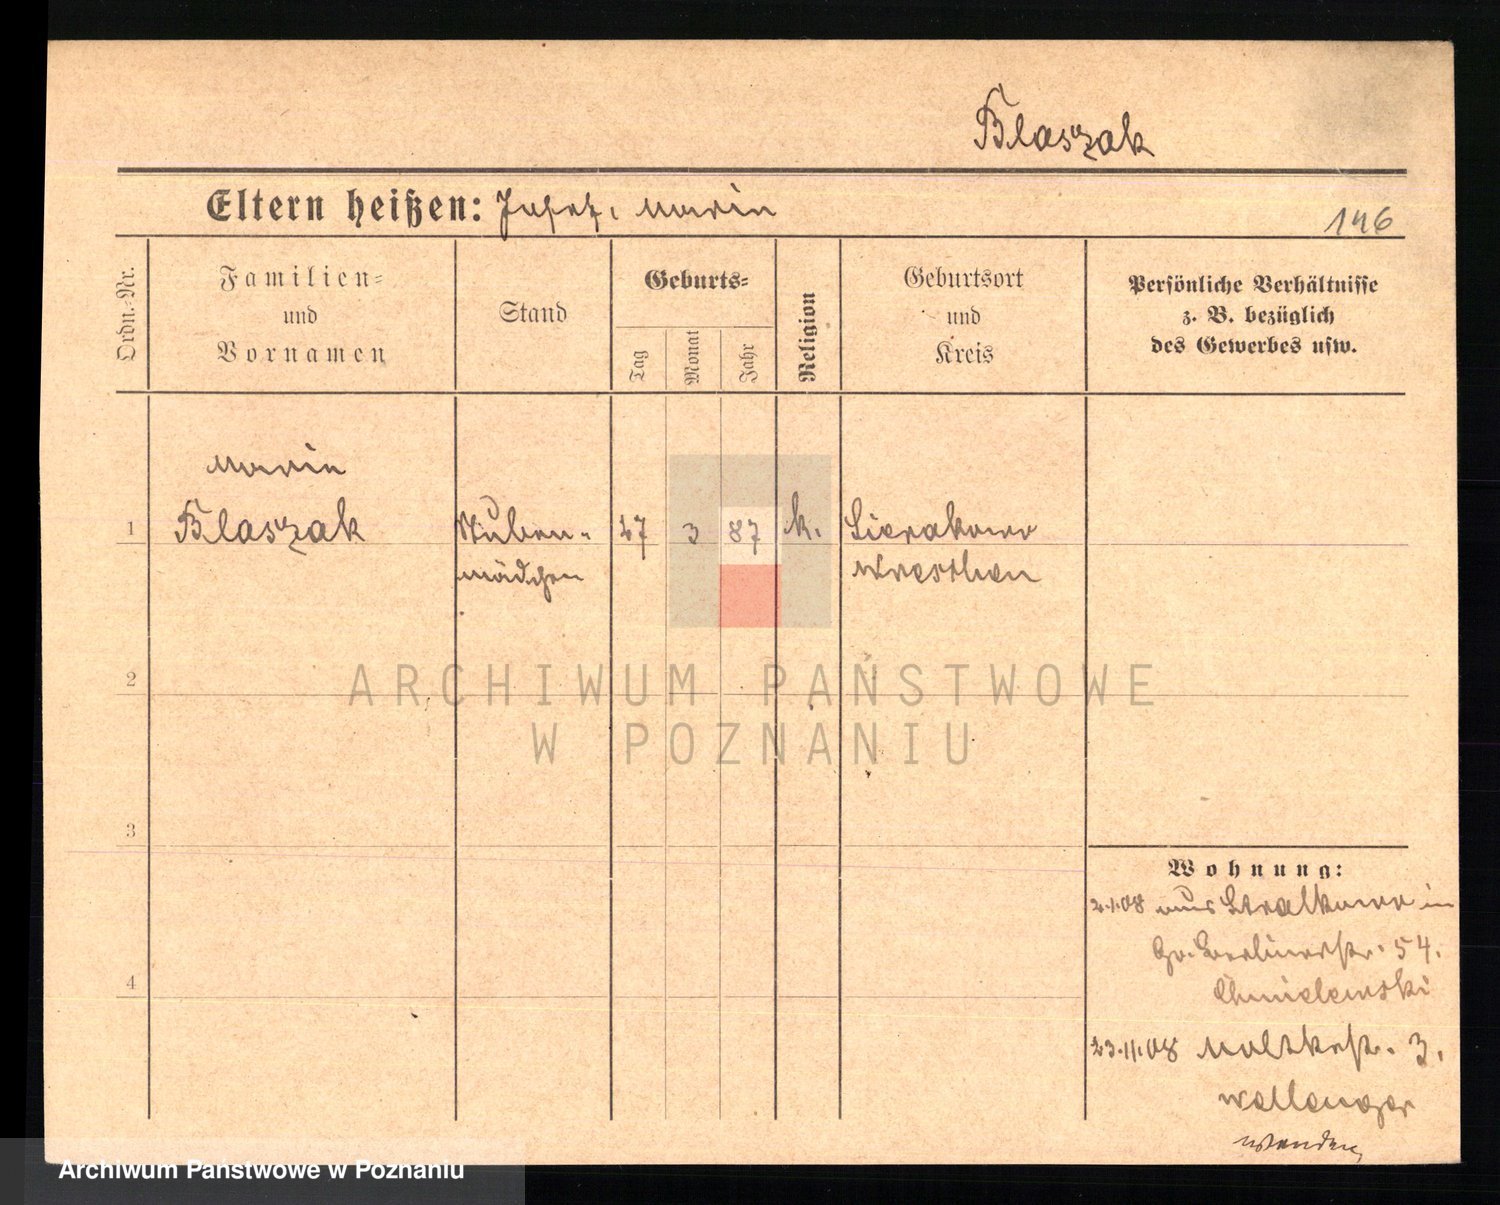 Blaszak
Eltern heißen: Josef, Maria
146
Ordn.-Nr.
Familien-
und
Vornamen
Stand
Geburts-
Tag
Monat
Jahr
Religion
Geburtsort
und
Kreis
Persönliche Verhältnisse
z. B. bezüglich
des Gewerbes usw.
Maria
1 Blaszak Stuben- 27 3 87 k. Sierakowo
mädchen Wreschen
2
ARCHIWUM PAŃSTWOWE
W POZNANIU
3
Wohnung:
2.1.08 aus Stralkowo in
Gr. Berlinerstr. 54.
Chmielewski
4
23.11.08 Moltkestr. 3.
wenden
Archiwum Państwowe w Poznaniu